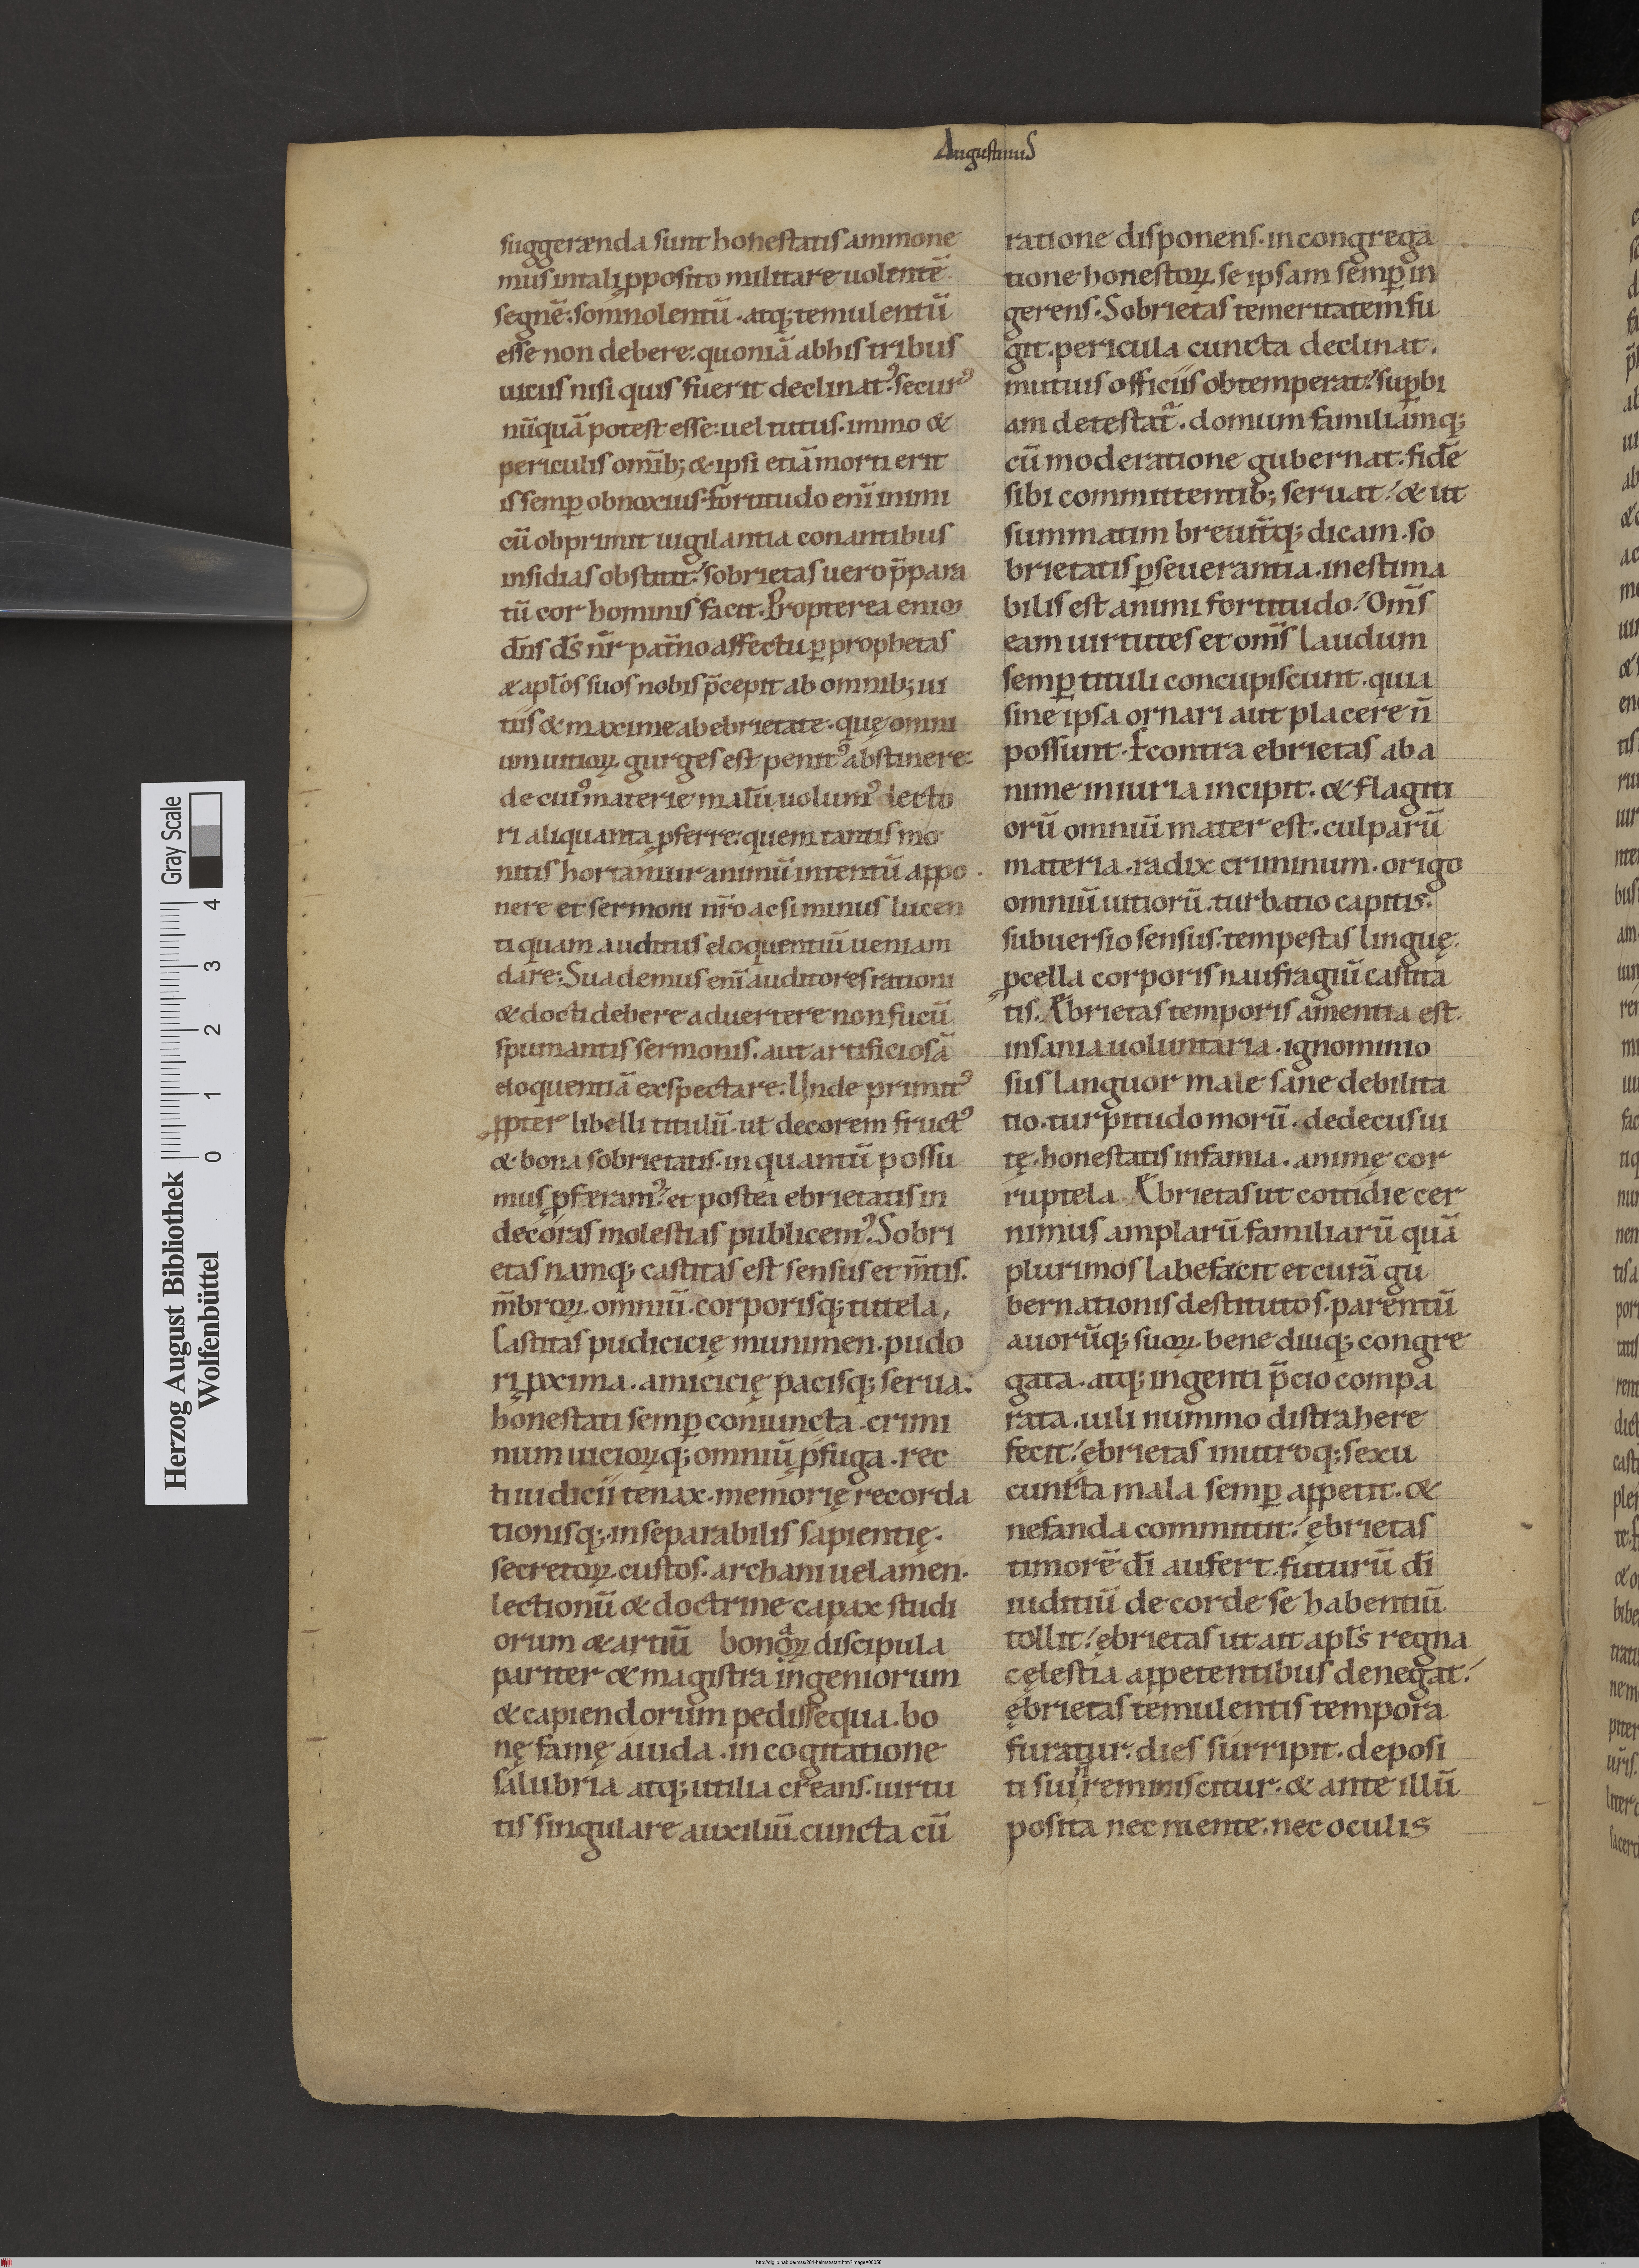 Augustinus
suggerænda sunt honestatis ammone
mus in tali ꝓposito militare uolentē
segnē. somnolentū. atq; temulentū
esse non debere. quoniā ab his tribus
uicus nisi quis fuerit declinatꝰ. securꝰ
nūquā potest esse. uel tutus. immo &
periculis omīb; & ipsi etiā morti erit
is semꝑ obnoxius. fortitudo enī inimi
cū obprimit uigilantia conantibus
insidias obstitit. sobrietas uero p̄para
tū cor hominis facit. Propterea enim
dn̄s ds̄ nr̄ pat̄no affectu ꝑ prophetas
& apl̄os suos nobis p̄cepit ab omnib; ui
tiis & maxime ab ebrietate. quę omni
um uitioꝝ gurges est penitꝰ abstinere.
de cuiꝰ materie malū uolumꝰ lecto
ri aliquanta ꝓferre. quem tantis mo
nitis hortamur animū intentū appo
nere et sermoni nr̄o ac si minus lucen
ti quam auditus eloquentiū ueniam
dare. Suademus enī auditores rationi
& docti debere aduertere non fucū
spumantis sermonis. aut artificiosā
eloquentiā exspectare. Unde primitꝰ
ꝓpter libelli titulū. ut decorem fructꝰ
& bona sobrietatis. in quantū possu
mus ꝓferamꝰ. et postea ebrietatis in
decoras molestias publicemꝰ. Sobri
etas namq; castitas est sensus et m̄tis.
m̄broꝝ omniū. corporisq; tutela,
Castitas pudicicię munimen. pudo
ri ꝓxima. amicicię pacisq; serua.
honestati semꝑ coniuncta. crimi
num uicioꝝq; omniū ꝓfuga. rec
ti iudicii tenax. memorię recorda
tionisq;. inseparabilis sapientię.
secretoꝝ custos. archani uelamen.
lectionū & doctrine capax studi
orum & artiū bonaꝝ discipula
pariter & magistra ingeniorum
& capiendorum pedissequa. bo
nę famę auida. in cogitatione
salubria atq; utilia creans. uirtu
tis singulare auxiliū. cuncta cū
ratione disponens. in congrega
tione honestoꝝ se ipsam semꝑ in
gerens. Sobrietas temeritatem fu
git. pericula cuncta declinat.
mutuis officiis obtemperat. suꝑbi
am detestat̄. domum familiamq;
cū moderatione gubernat. fidē
sibi committentib; seruat. & ut
summatim breuit̄q; dicam. so
brietatis ꝑseuerantia. inestima
bilis est animi fortitudo. Om̄s
eam uirtutes et om̄s laudum
semꝑ tituli concupiscunt. quia
sine ipsa ornari aut placere n̄
possunt. Econtra ebrietas ab a
nime iniuria incipit. & flagiti
orū omniū mater est. culparū
materia. radix criminum. origo
omniū uitiorū. turbatio capitis.
subuersio sensus. tempestas linguę.
ꝓcella corporis naufragiū castita
tis. Æbrietas temporis amentia est.
insania uoluntaria. ignominio
sus languor male sane debilita
tio. turpitudo morū. dedecus ui
tę. honestatis infamia. animę cor
ruptela. Æbrietas ut cottidie cer
nimus amplarū familiarū quā
plurimos labefacit et curā gu
bernationis destitutos. parentū
auorūq; suoꝝ bene diuq; congre
gata. atq; ingenti p̄cio compa
rata. uili nummo distrahere
fecit. ębrietas in utroq; sexu
cuncta mala semꝑ appetit. &
nefanda committit. ębrietas
timorē dī aufert. futurū dī
iuditiū de corde se habentiū
tollit. ębrietas ut ait apl̄s regna
cęlestia appetentibus denegat.
ębrietas temulentis tempora
furatur. dies surripit. depositi
ti sui n̄ reminiscitur. & ante illū
posita nec mente. nec oculis
Herzog August Bibliothek
Wolfenbüttel
0 1 2 3 4
Gray Scale
http://diglib.hab.de/mss/281-helmst/start.htm?image=00058